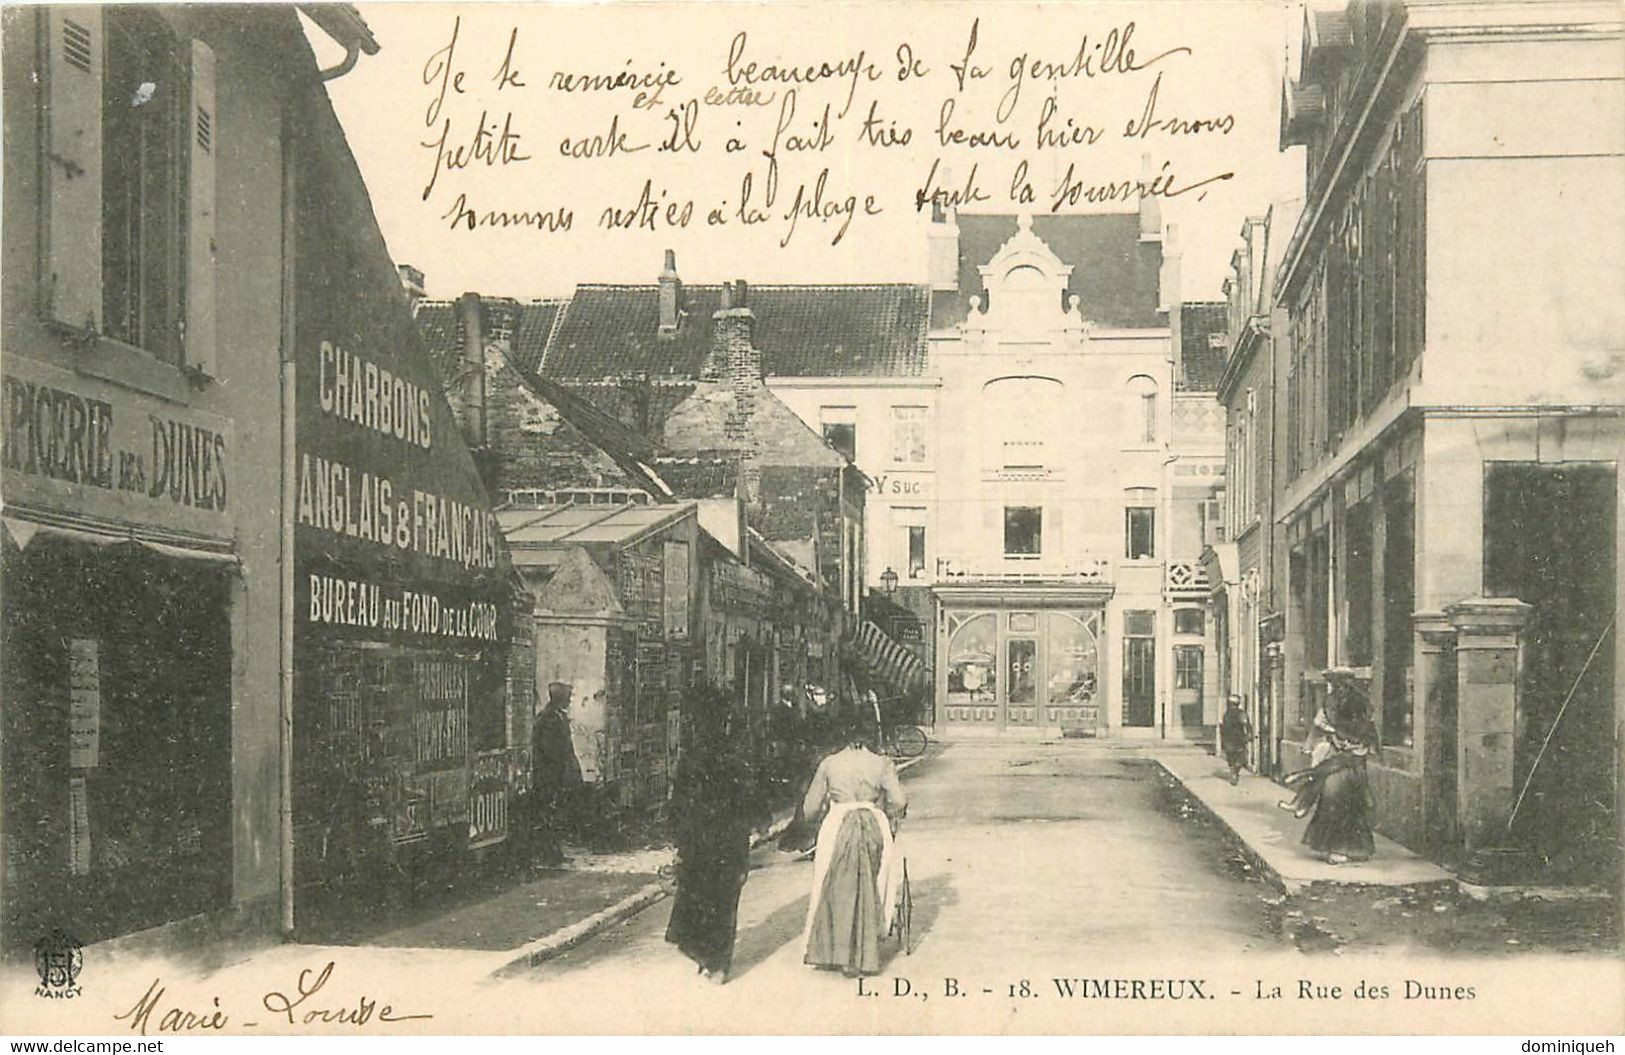 Je te remércie beaucoup de ta gentille
et lettre
petite carte. Il à fait très beau hier et nous
sommes restiés à la plage toute la journée,
ÉPICERIE DES DUNES
CHARBONS
ANGLAIS & FRANÇAIS
BUREAU AU FOND DE LA COUR
PASTILLES
VICHY-ETAT
LOUIT
Y SUC
NANCY
Marie-Louise
L. D., B. - 18. WIMEREUX. - La Rue des Dunes
https://www.delcampe.net
dominiqueh